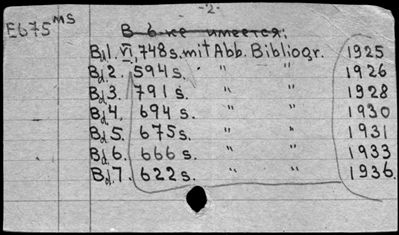 -2-
E675 MS
В б-ке имеется:
Bd.1. VI, 748s. mit Abb. Bibliogr. 1925
Bd.2. 594s. " " 1926
Bd.3. 791s. " " 1928
Bd.4. 694s. " " 1930
Bd.5. 675s. " " 1931
Bd.6. 666s. " " 1933
Bd.7. 622s. " " 1936.